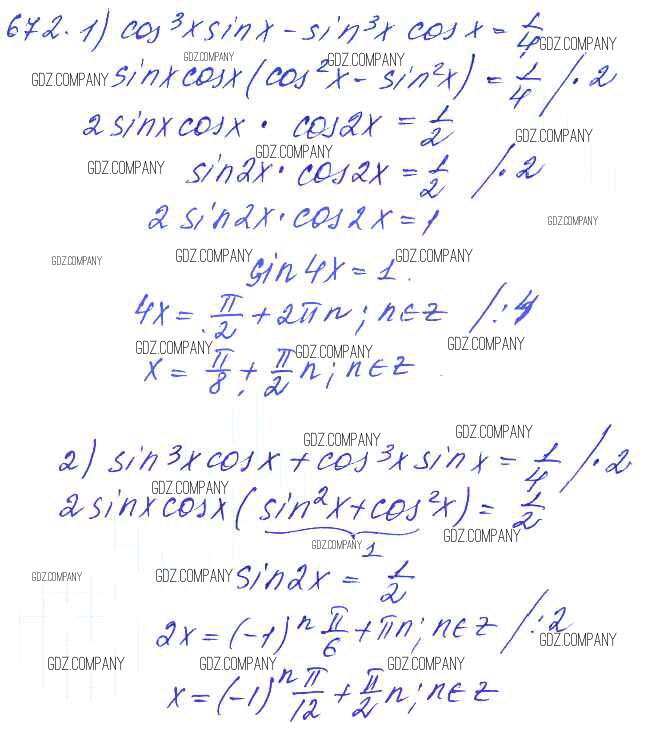 672. 1) cos³x sinx − sin³x cosx = 1/4
GDZ.COMPANY
GDZ.COMPANY GDZ.COMPANY
GDZ.COMPANY sinx cosx (cos²x − sin²x) = 1/4 /·2
2 sinx cosx · cos2x = 1/2
GDZ.COMPANY
GDZ.COMPANY
GDZ.COMPANY sin2x · cos2x = 1/2 /·2
2 sin2x · cos2x = 1
GDZ.COMPANY
GDZ.COMPANY GDZ.COMPANY GDZ.COMPANY
sin4x = 1.
4x = π/2 + 2πn; n∈z /:4
GDZ.COMPANY GDZ.COMPANY GDZ.COMPANY
x = π/8 + π/2 n; n∈z
GDZ.COMPANY GDZ.COMPANY
2) sin³x cosx + cos³x sinx = 1/4 /·2
GDZ.COMPANY
2 sinx cosx (sin²x + cos²x) = 1/2
GDZ.COMPANY 1 GDZ.COMPANY
GDZ.COMPANY GDZ.COMPANY sin2x = 1/2
2x = (−1)ⁿ π/6 + πn; n∈z /:2
GDZ.COMPANY
GDZ.COMPANY GDZ.COMPANY GDZ.COMPANY
x = (−1)ⁿ π/12 + π/2 n; n∈z